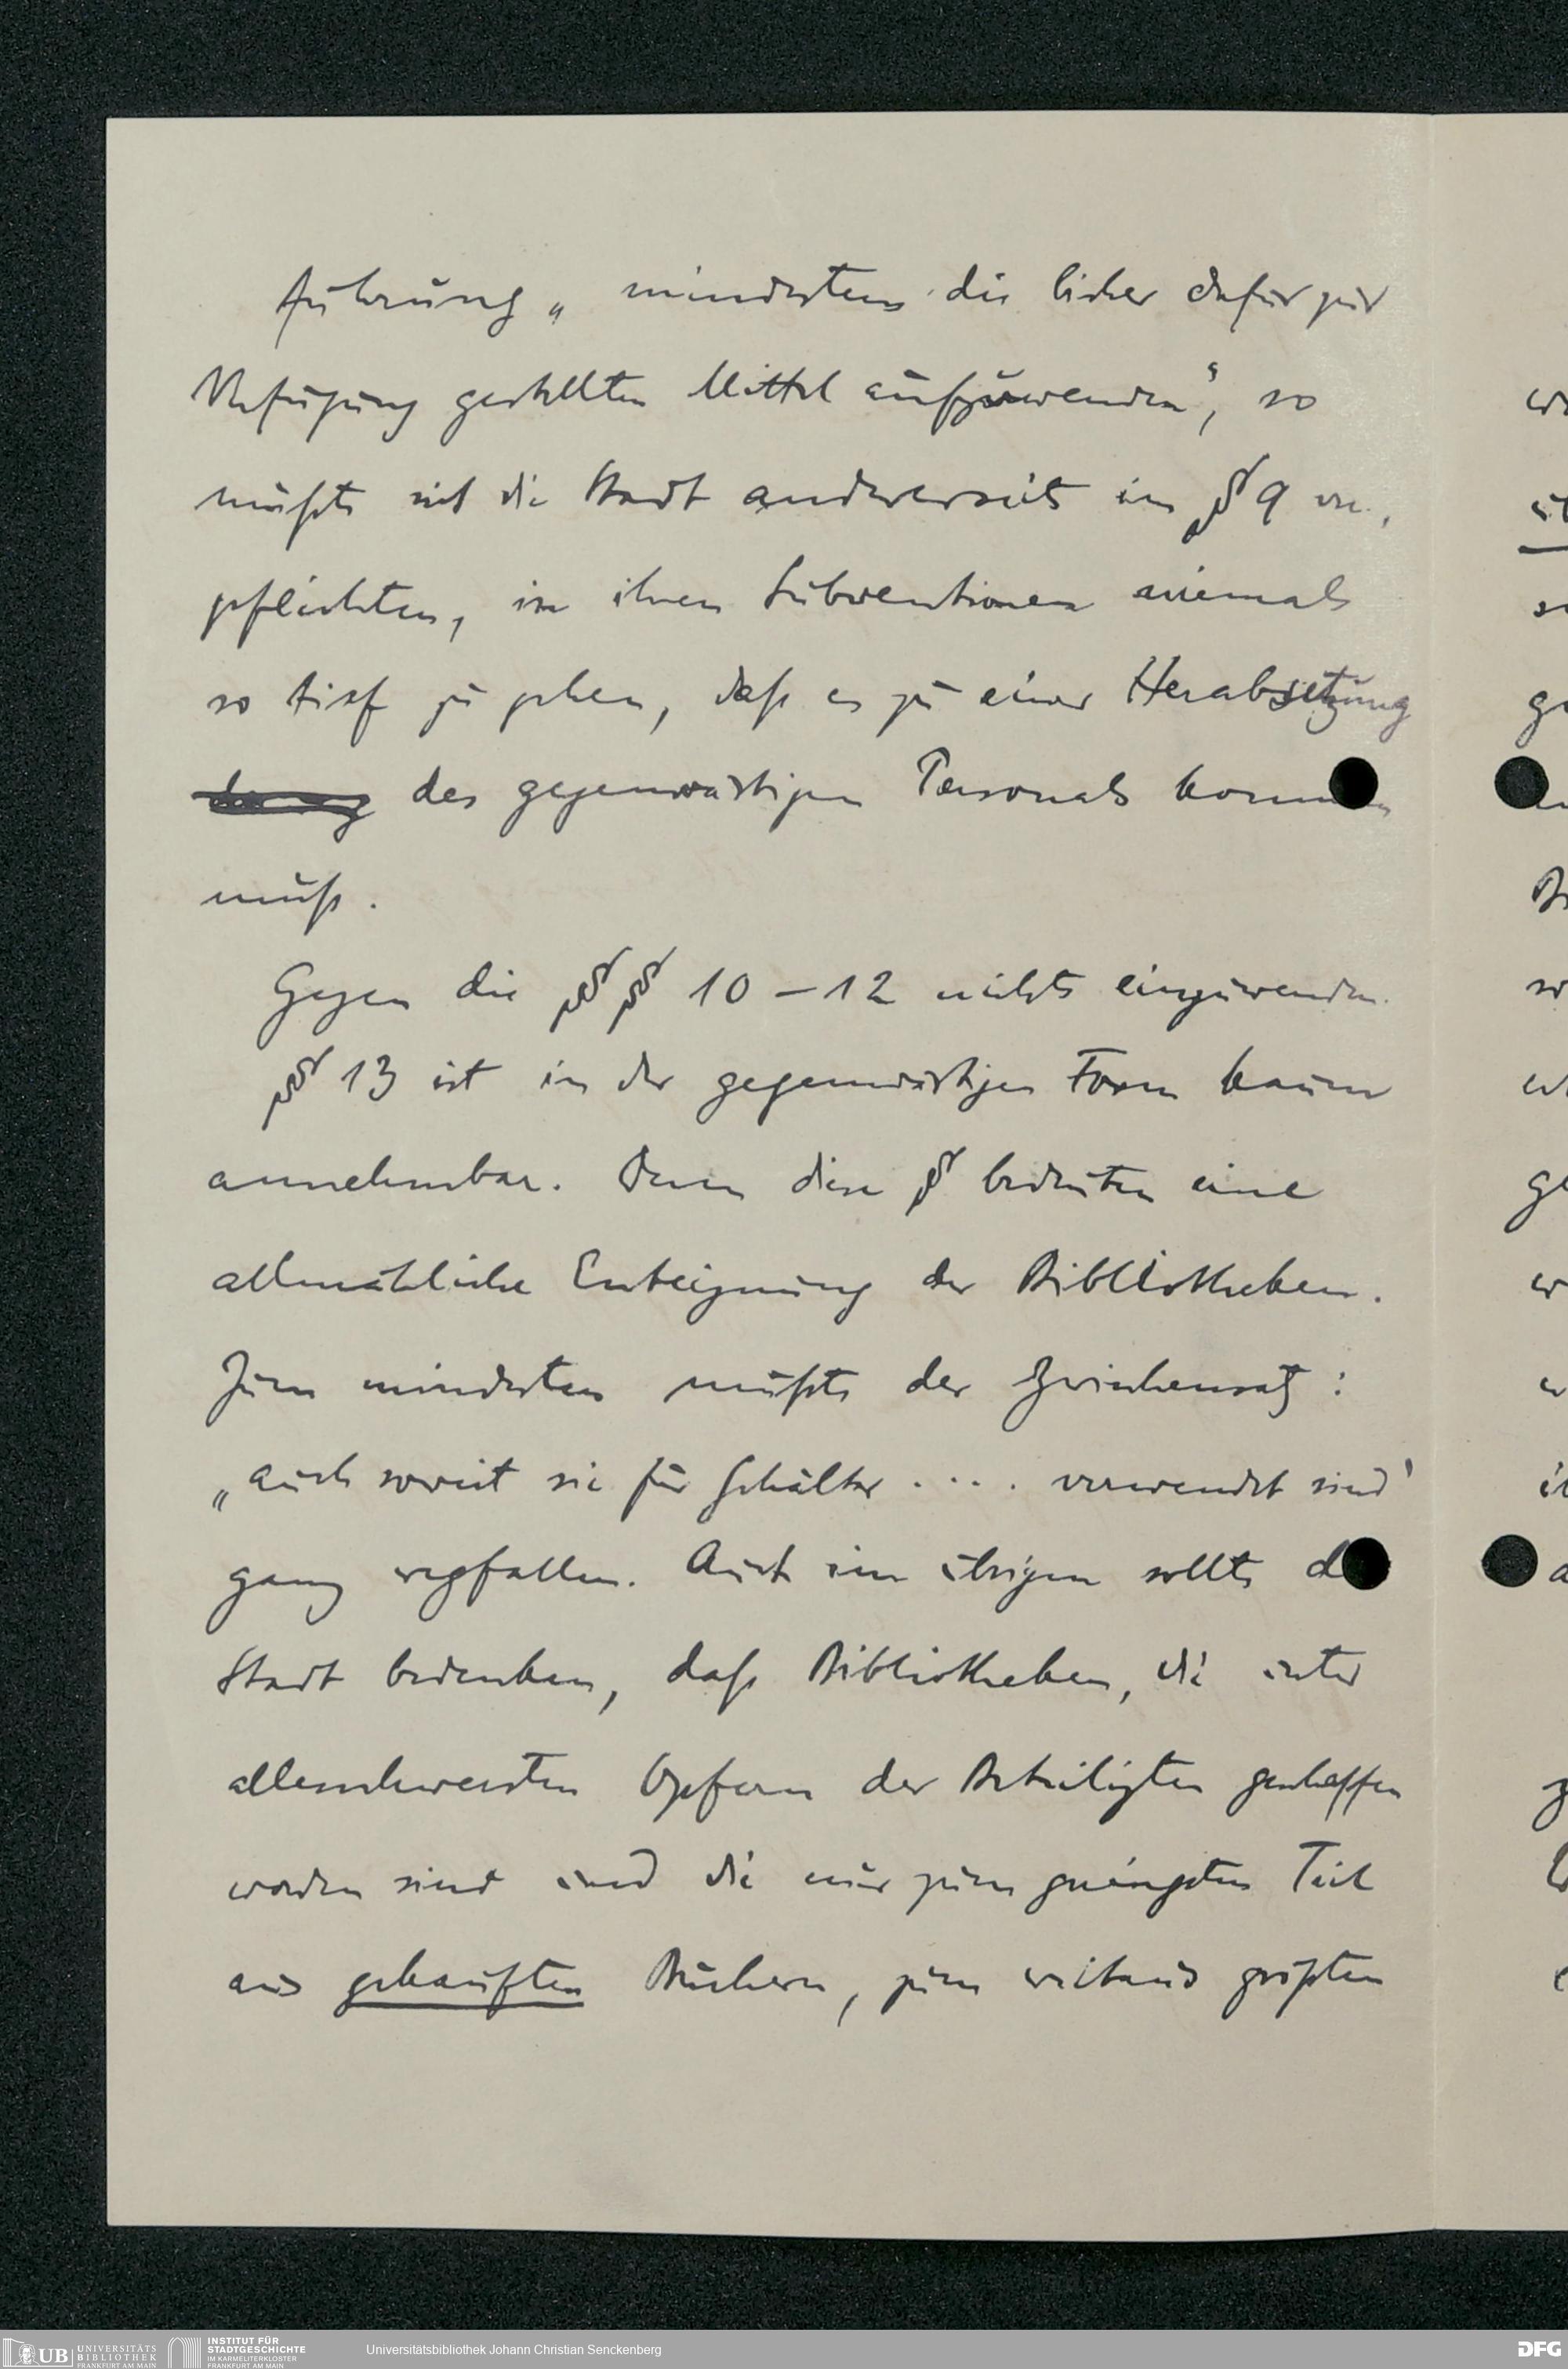 führung „mindestens die bisher dafür zur
Verfügung gestellten Mittel aufzuwenden“, so
müßte sich die Stadt andererseits in § 9 ver-
pflichten, in ihren Subventionen niemals
so tief zu gehen, daß es zu einer Herabsetzung
des gegenwärtigen Personals kommen
muß.
Gegen die §§ 10–12 nichts einzuwenden.
§ 13 ist in der gegenwärtigen Form kaum
annehmbar. Denn diese § bedeuten eine
allmähliche Enteignung der Bibliotheken.
Zum mindesten müßte der Zwischensatz:
„auch soweit sie für Gehälter .... verwendet sind“
ganz wegfallen. Auch im übrigen sollte d
Stadt bedenken, daß Bibliotheken, die unter
allerschwersten Opfern der Beteiligten geschaffen
worden sind und die nur zum geringsten Teil
aus gekauften Büchern, zum weitaus größten
UB UNIVERSITÄTS
BIBLIOTHEK
FRANKFURT AM MAIN
INSTITUT FÜR
STADTGESCHICHTE
IM KARMELITERKLOSTER
FRANKFURT AM MAIN
Universitätsbibliothek Johann Christian Senckenberg
DFG